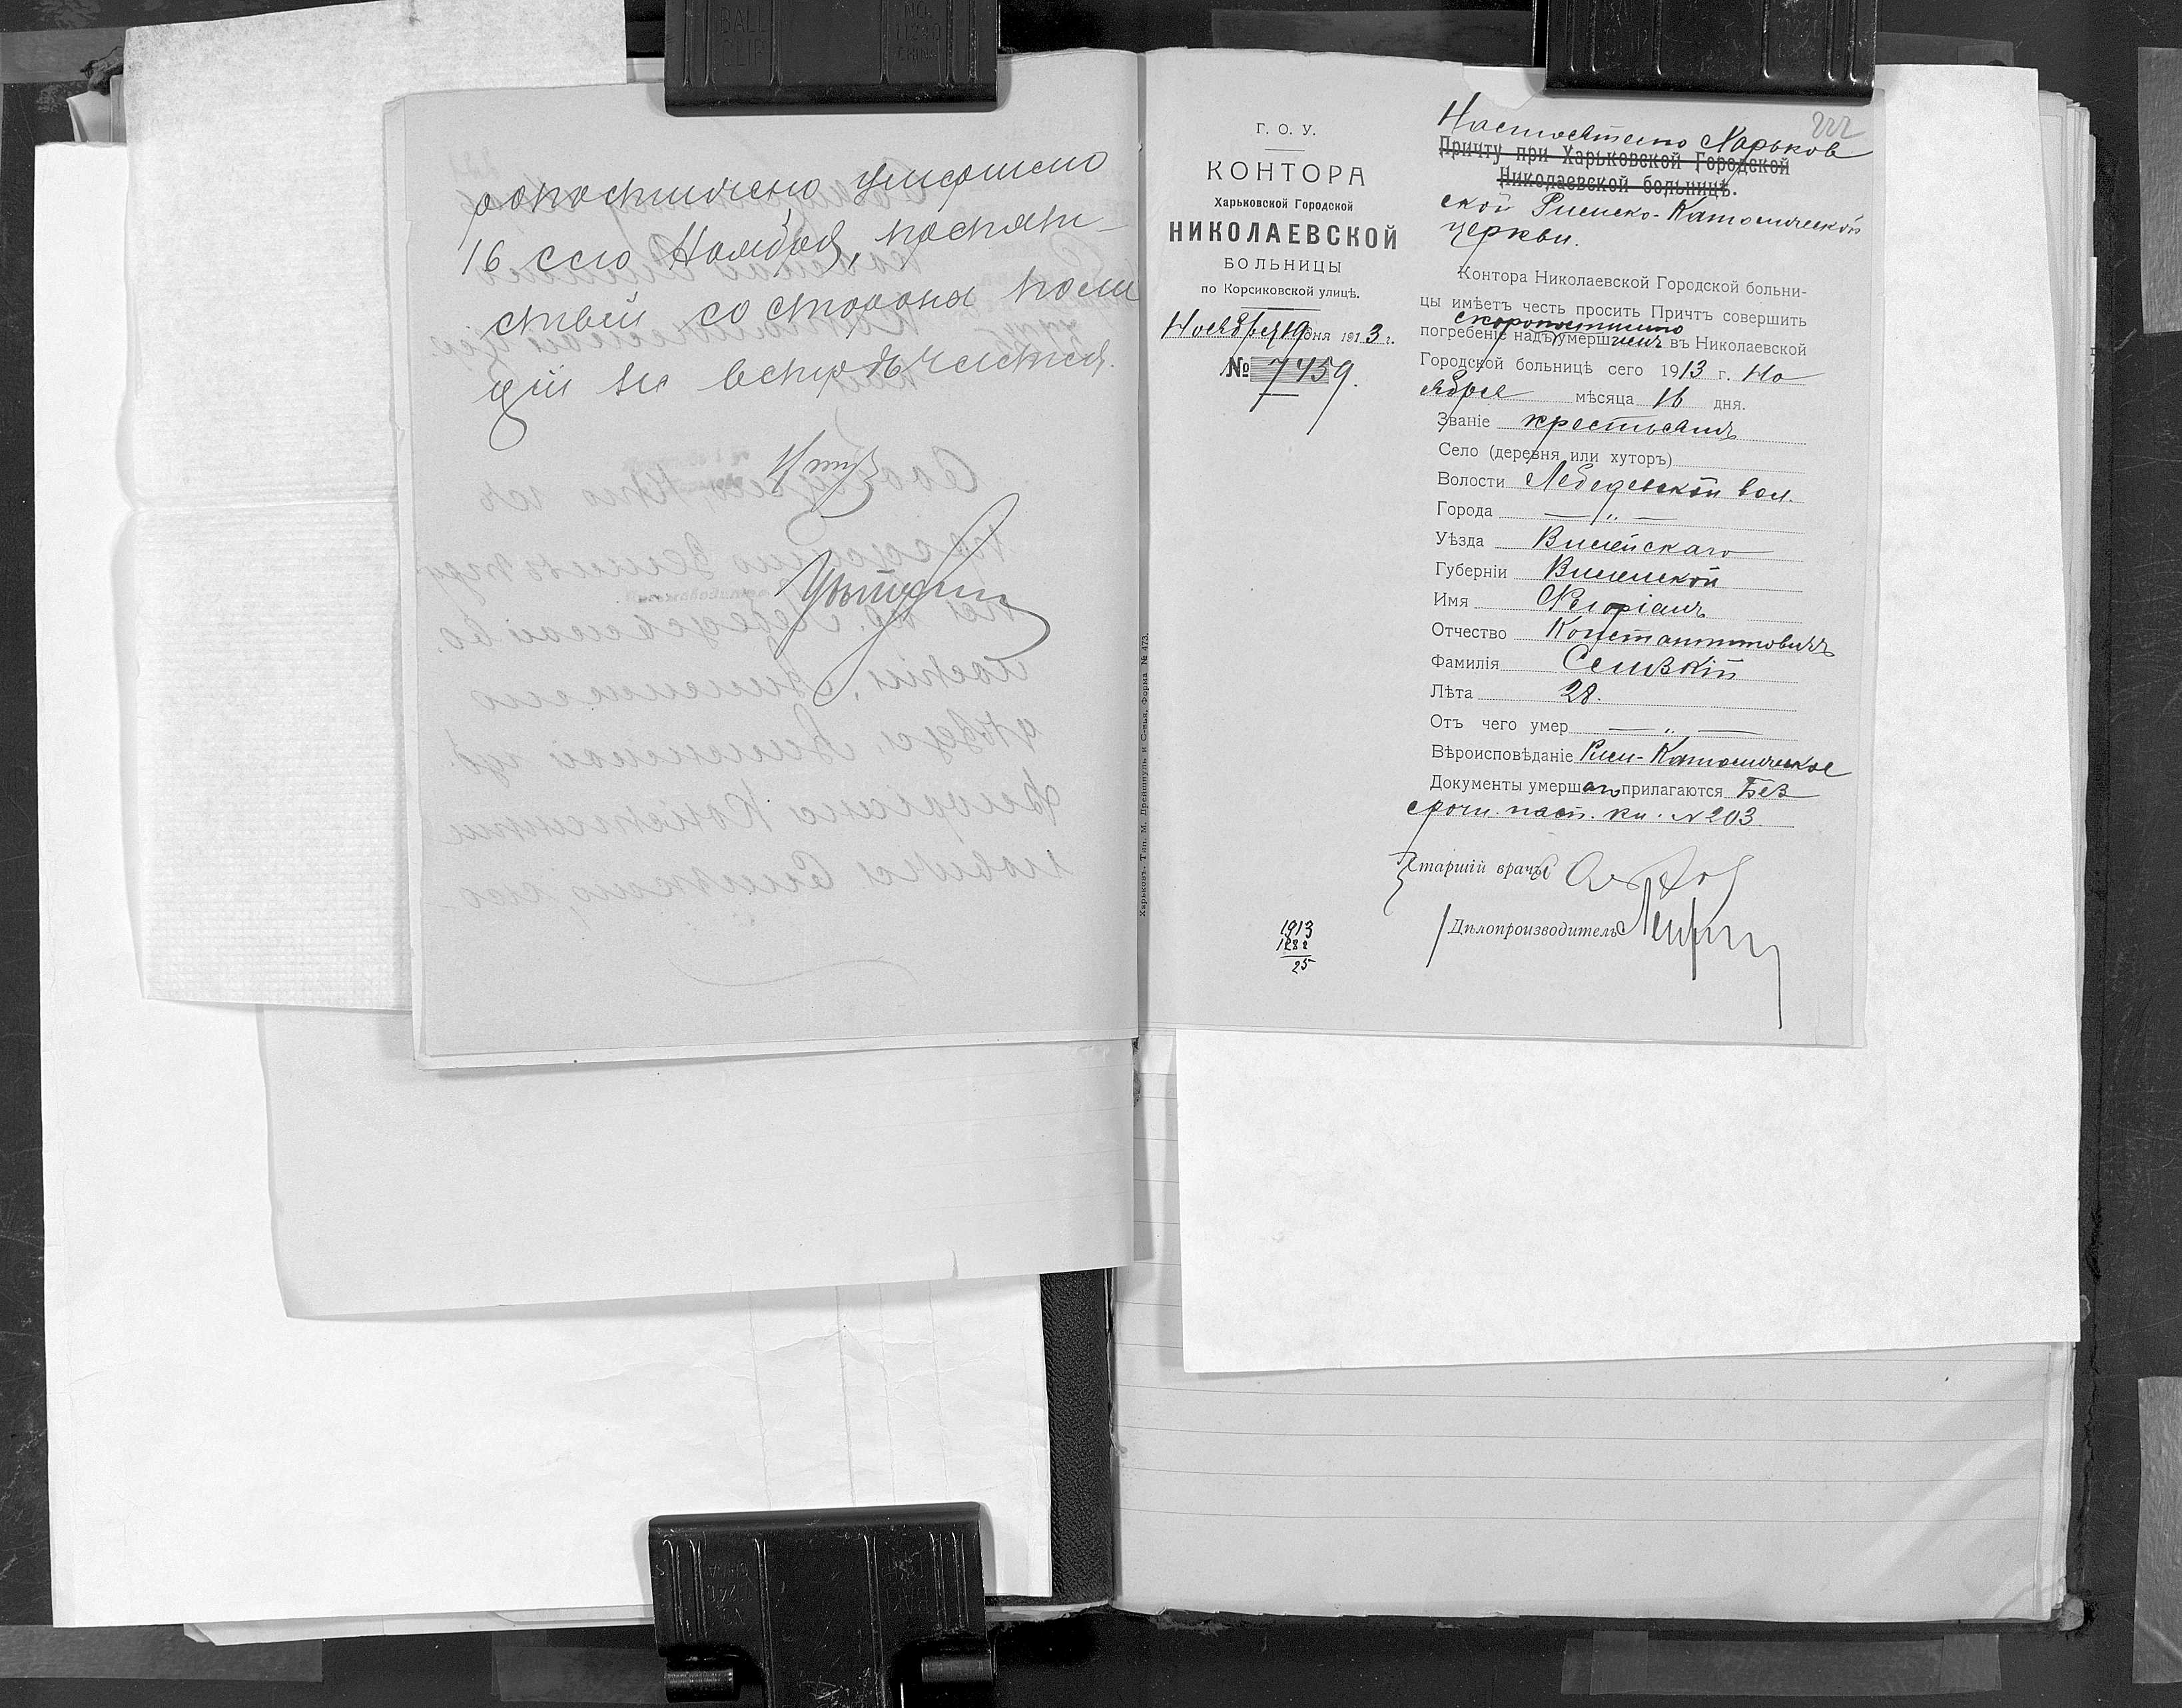 ропостижно умершаго
16 сего Ноября, препят-
ствий со стороны поли
ціи не встрѣчается.
222
Г. О. У.
КОНТОРА
Харьковской Городской
НИКОЛАЕВСКОЙ
БОЛЬНИЦЫ
по Корсиковской улицѣ.
Ноября 19 дня 1913 г.
№ 7459.
Настоятелю Харьков
Причту при Харьковской Городской
Николаевской больницѣ.
ской Римско-Католической
церкви.
Контора Николаевской Городской больни-
цы имѣетъ честь просить Причтъ совершить
скоропостижно
погребеніе надъ умершимъ въ Николаевской
Городской больницѣ сего 1913 г. Но
ября мѣсяца 16 дня.
Званіе крестьянинъ
Село (деревня или хуторъ)
Волости Лебедевской вол.
Города — „ —
Уѣзда Вилейскаго
Губерніи Виленской
Имя Флоріанъ
Отчество Константиновичъ
Фамилія
Лѣта 28.
Отъ чего умер — „ —
Вѣроисповѣданіе Рим-Католическое
Документы умершаго прилагаются Без
срочн. пасп. кн. № 203.
Старшій врачъ
Дѣлопроизводитель
1913
1888
25
Харьковъ. Тип. М. Дрейшпуль и С-вья. Форма № 473.